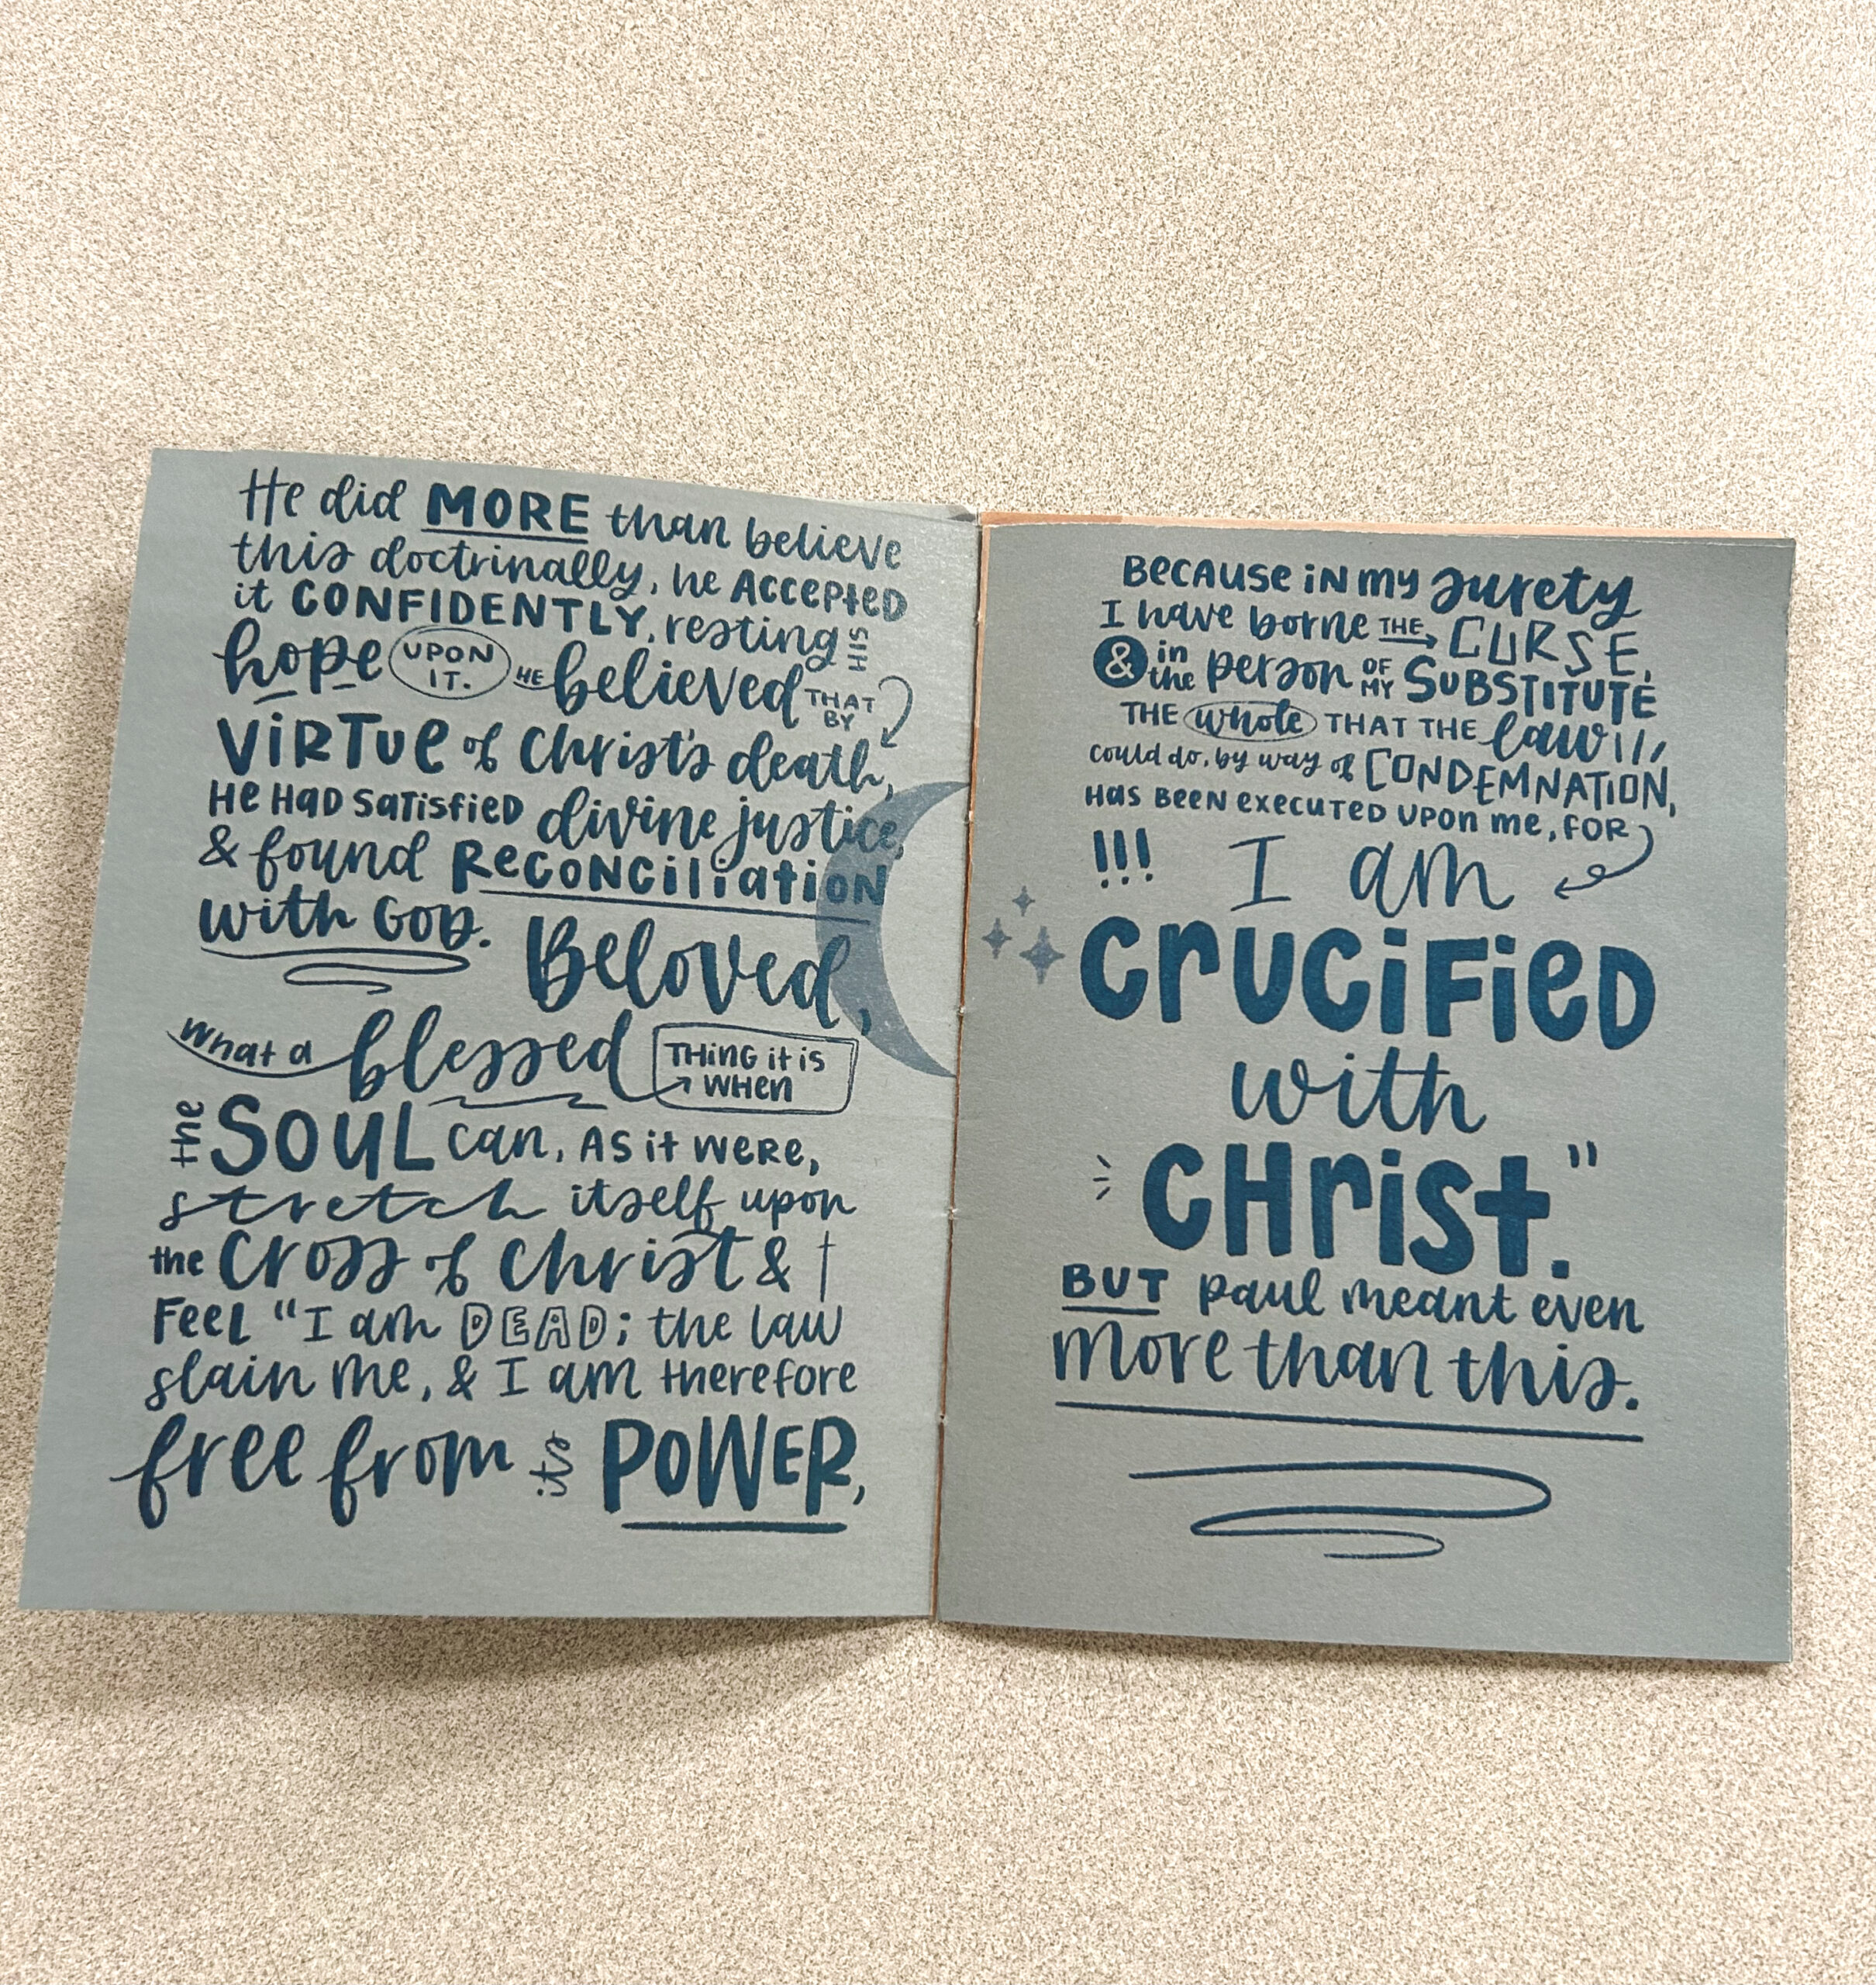 He did MORE than believe
this doctrinally, he ACCEPTED
it CONFIDENTLY, resting HIS
hope UPON IT. HE believed THAT BY
VIRTUE of Christ's death,
He HAD SATISFIED divine justice,
& found RECONCILIATION
with GOD. Beloved,
what a blessed THING it is WHEN
the SOUL can, AS it WERE,
stretch itself upon
the Cross of Christ &
FEEL "I am DEAD; the law
slain me, & I am therefore
free from its POWER,
BECAUSE IN my surety
I have borne THE CURSE,
& in the person OF MY SUBSTITUTE
THE whole THAT THE law
could do, by way of CONDEMNATION,
HAS BEEN EXECUTED UPON me, FOR
!!! I am
CRUCIFIED
with
CHRIST."
BUT Paul meant even
more than this.